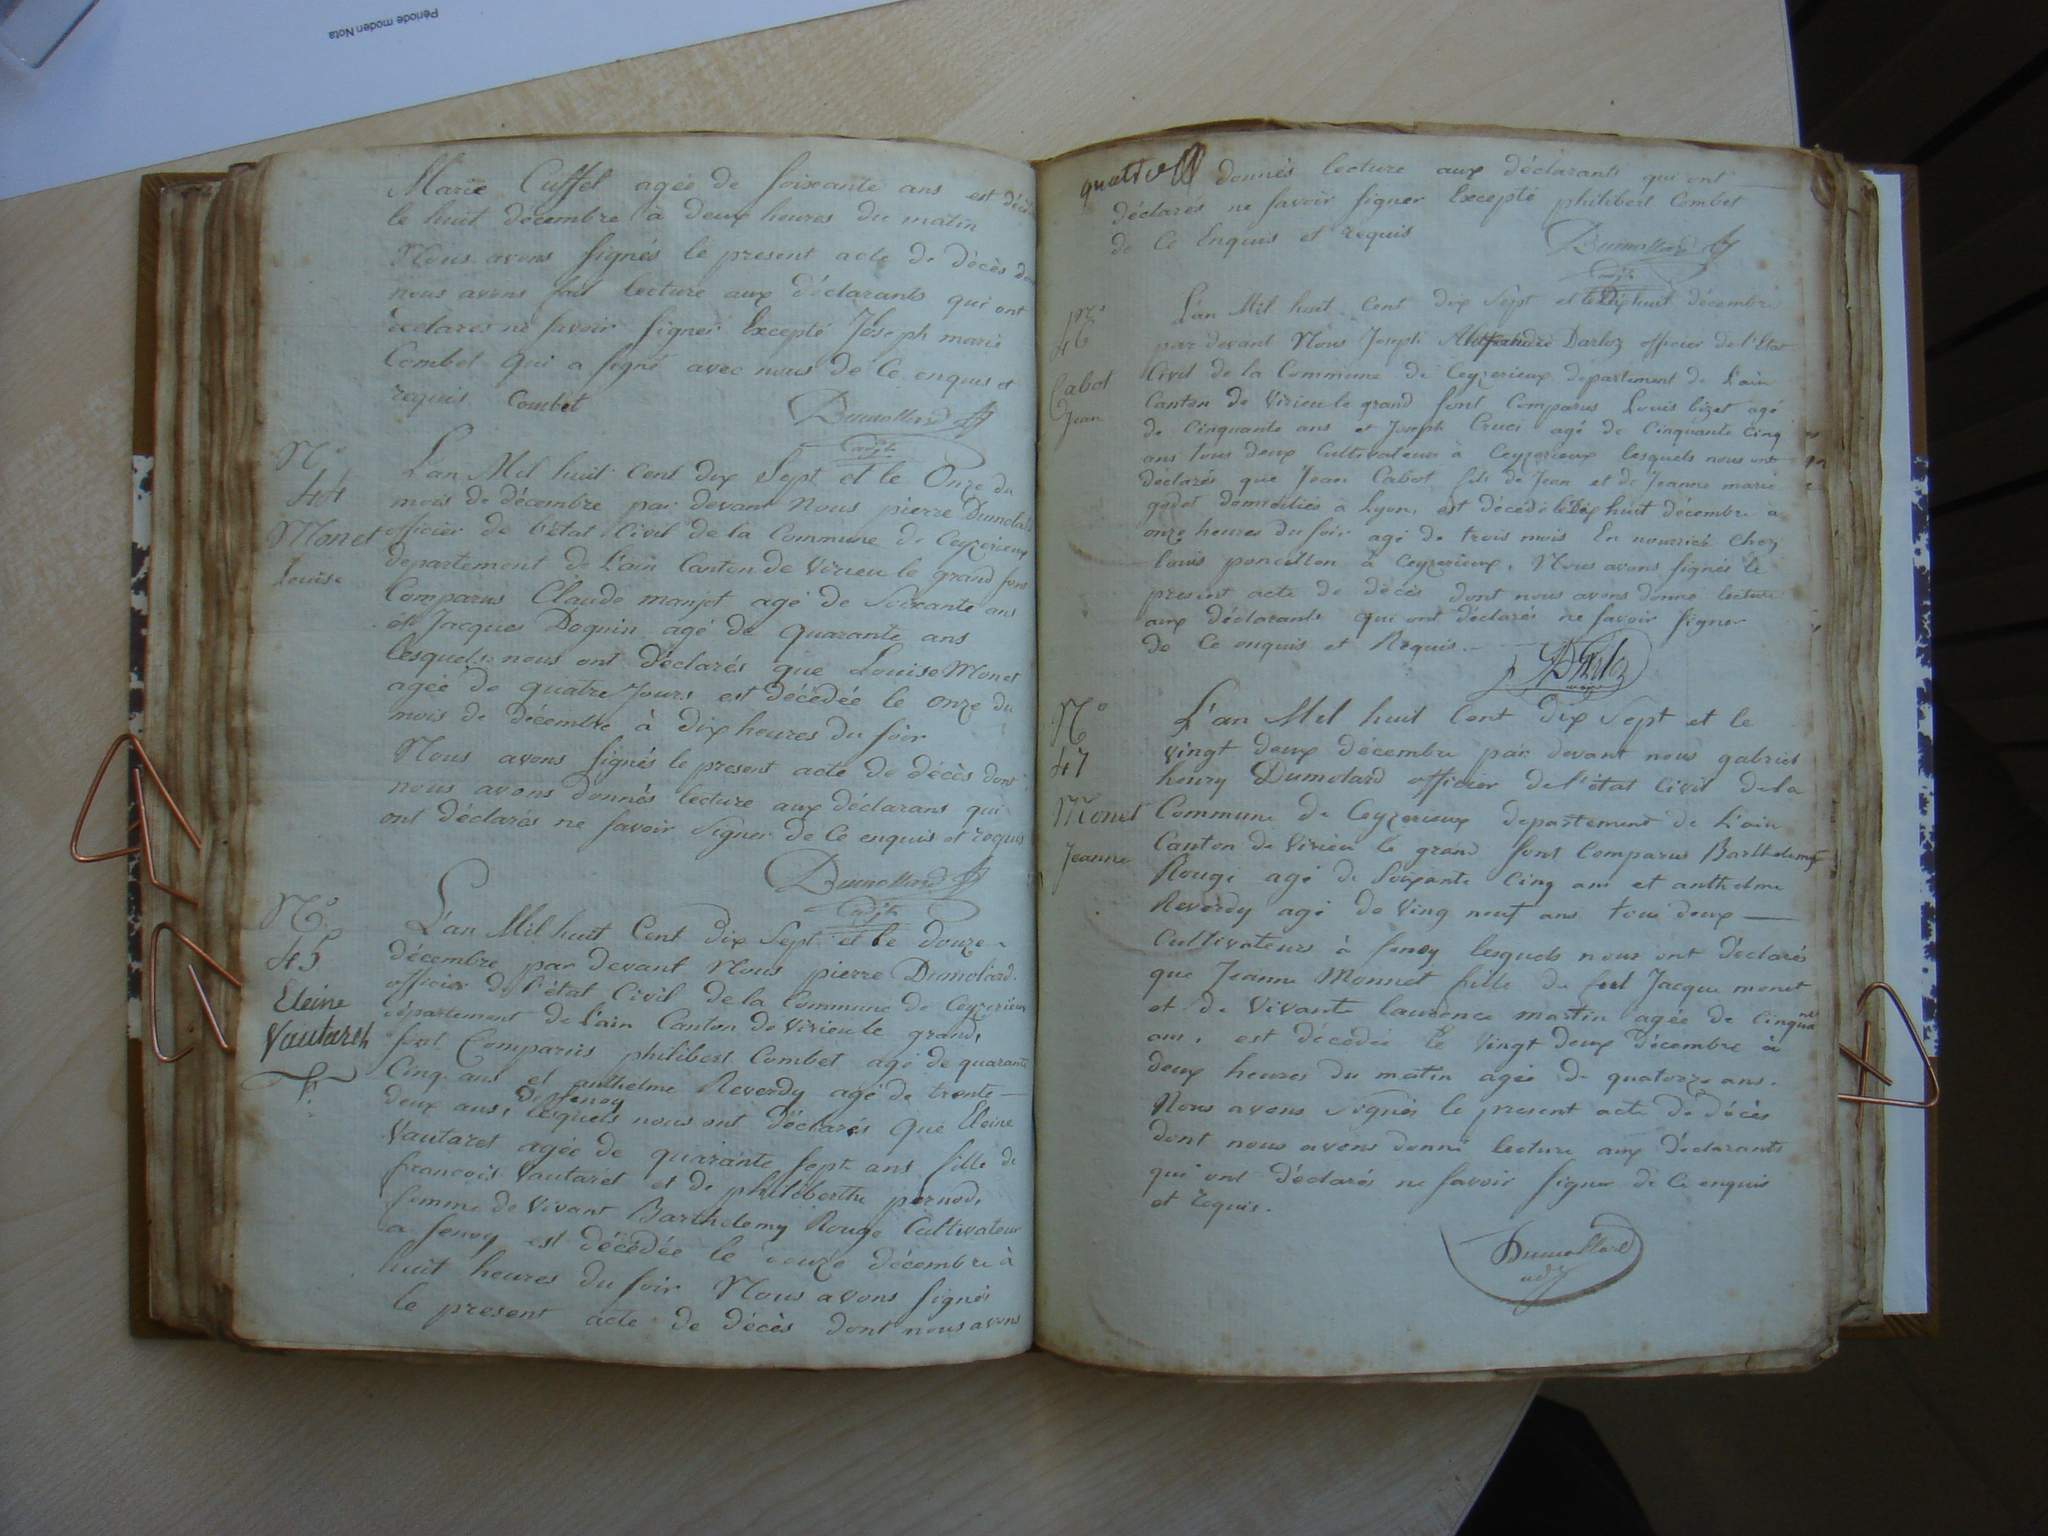 Période moden Nota
Marie Cuffel agée de soixante ans est décé
le huit décembre à deux heures du matin
Nous avons signés le present acte de décès
nous avons fait lecture aux déclarants qui ont
declarés ne savoir signer Excepté Joseph marie
Combet qui a signé avec nous de Ce enquis et
requis Combet
Dumollard
adjt
N.o
44
Monet
Louise
L'an Mil huit Cent dix Sept et le Onze du
mois de décembre par devant Nous pierre Dumolard
officier de l'état Civil de la Commune de Ceyzerieux
departement de L'ain Canton de Virieu le grand sont
Comparus Claude manjot agé de Soixante ans
et Jacques Doquin agé de quarante ans
lesquels nous ont déclarés que Louise Monet
agée de quatre Jours est décédée le onze du
mois de décembre à dix heures du soir
Nous avons signés le present acte de décès dont
nous avons donnés lecture aux déclarans qui
ont déclarés ne savoir signer de Ce enquis et requis
Dumollard
adjt
N.o
45
Eleine
Vautaret
L'an Mil huit Cent dix Sept et le douze
décembre par devant Nous pierre Dumolard
officier de l'état Civil de la Commune de Ceyzerieu
département de l'ain Canton de Virieu le grand,
sont Comparus philibert Combet agé de quarante
Cinq ans et anthelme Reverdy agé de trente
de fenoy
deux ans, lesquels nous ont déclarés que Eleine
Vautaret agée de quarante sept ans fille de
francois Vautaret et de philiberthe pernod,
femme de Vivant Barthelemy Rouge Cultivateur
a fenoy est décédée le douze décembre à
huit heures du soir Nous avons signés
le present acte de décès dont nous avons
quatre donnés lecture aux déclarants qui ont
déclarés ne savoir signer Excepté philibert Combet
de Ce Enquis et requis
Dumollard
adjt
N.o
46
Cabot
Jean
L'an Mil huit Cent dix Sept et le Dix huit décembre
par devant Nous Joseph Darloz officier de l'Etat
Civil de la Commune de Ceyzerieux departement de L'ain
Canton de Virieu le grand sont Comparus Louis bizet agé
de Cinquante ans et Joseph Cruci agé de Cinquante Cinq
ans tous deux Cultivateurs à Ceyzerieux lesquels nous ont
déclarés que Jean Cabot fils de Jean et de Jeanne marie
godet domiciliés a Lyon, est décédé le Dix huit décembre a
onze heures du soir agé de trois mois En nourrice chez
louis poncillon à Ceyzerieux, Nous avons signés le
present acte de décès dont nous avons donné lecture
aux déclarants qui ont déclarés ne savoir signer
de Ce enquis et Requis.
Darloz
N.o
47
Monet
Jeanne
L'an Mil huit Cent dix Sept et le
vingt deux décembre par devant nous gabriel
henry Dumolard officier de l'état Civil de la
Commune de Ceyzerieux departement de L'ain
Canton de Virieu le grand sont Comparus Barthelemy
Rouge agé de Soixante Cinq ans et anthelme
Reverdy agé de Ving neuf ans tous deux
Cultivateurs à fenoy lesquels nous ont déclarés
que Jeanne Monnet fille de feu Jacque monet
et de Vivante laurence martin agée de Cinquante
ans, est décédée le Vingt Deux Décembre à
deux heures du matin agée de quatorze ans.
Nous avons signés le present acte de décès
dont nous avons donné lecture aux Déclarants
qui ont déclarés ne savoir signer de Ce enquis
et requis.
Dumollard
adjt